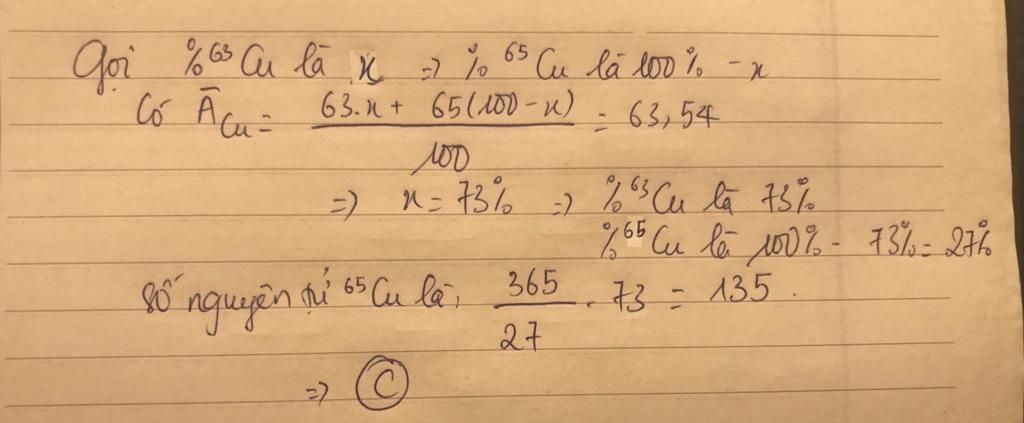 Gọi % ⁶³Cu là x => % ⁶⁵Cu là 100% - x
Có Ā Cu = 63.x + 65(100 - x) / 100 = 63,54
=> x = 73% => % ⁶³Cu là 73%
% ⁶⁵Cu là 100% - 73% = 27%
Số nguyên tử ⁶⁵Cu là: 365 / 27 . 73 = 135.
=> C